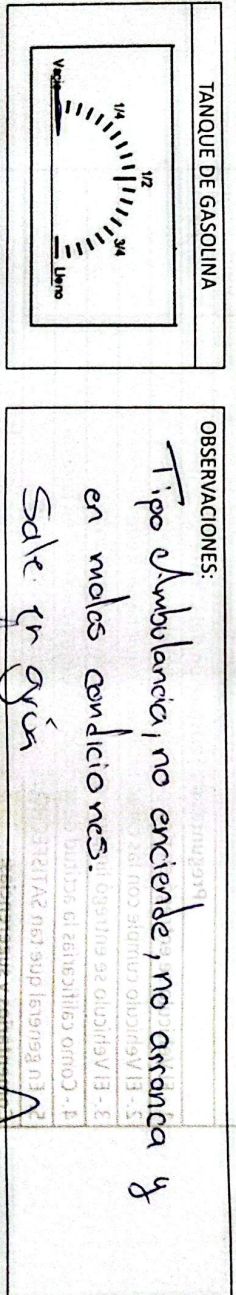 TANQUE DE GASOLINA
Vacio
1/4
1/2
3/4
Lleno
OBSERVACIONES:
Tipo Ambulancia, no enciende, no arranca y
en malas condiciones.
Sale en grúa